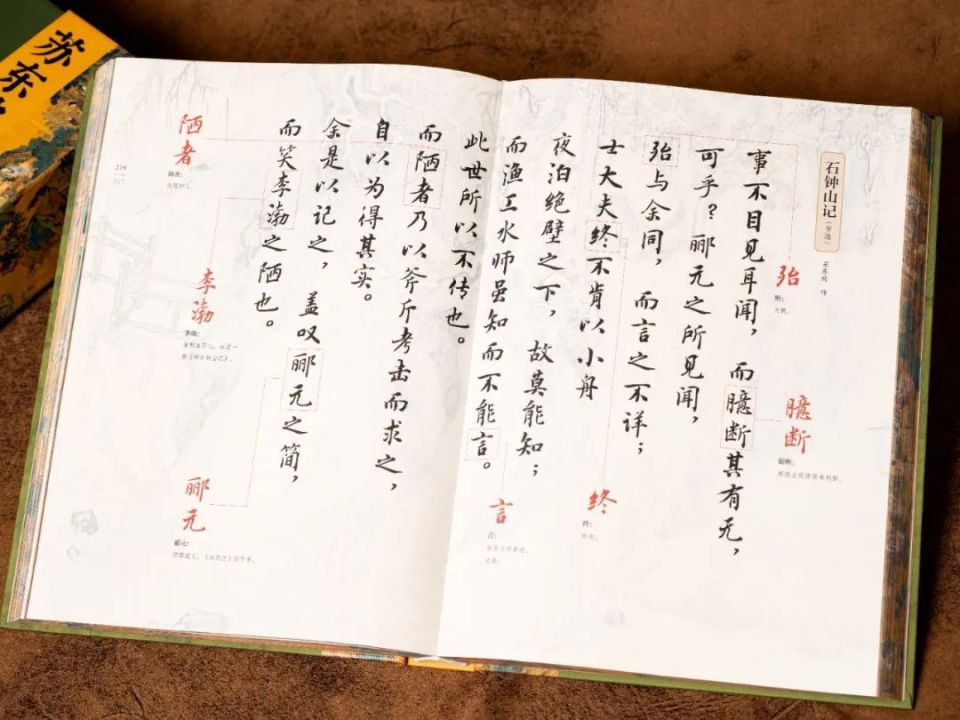 苏东
石钟山记（节选）
苏东坡 作
事不目见耳闻，而臆断其有无，
可乎？郦元之所见闻，
殆与余同，而言之不详；
士大夫终不肯以小舟
夜泊绝壁之下，故莫能知；
而渔工水师虽知而不能言。
此世所以不传也。
而陋者乃以斧斤考击而求之，
自以为得其实。
余是以记之，盖叹郦元之简，
而笑李渤之陋也。
殆
大概。
臆断
臆断：
终
终：
言
陋者
陋者：
李渤
李渤：
郦元
郦元：
216
217